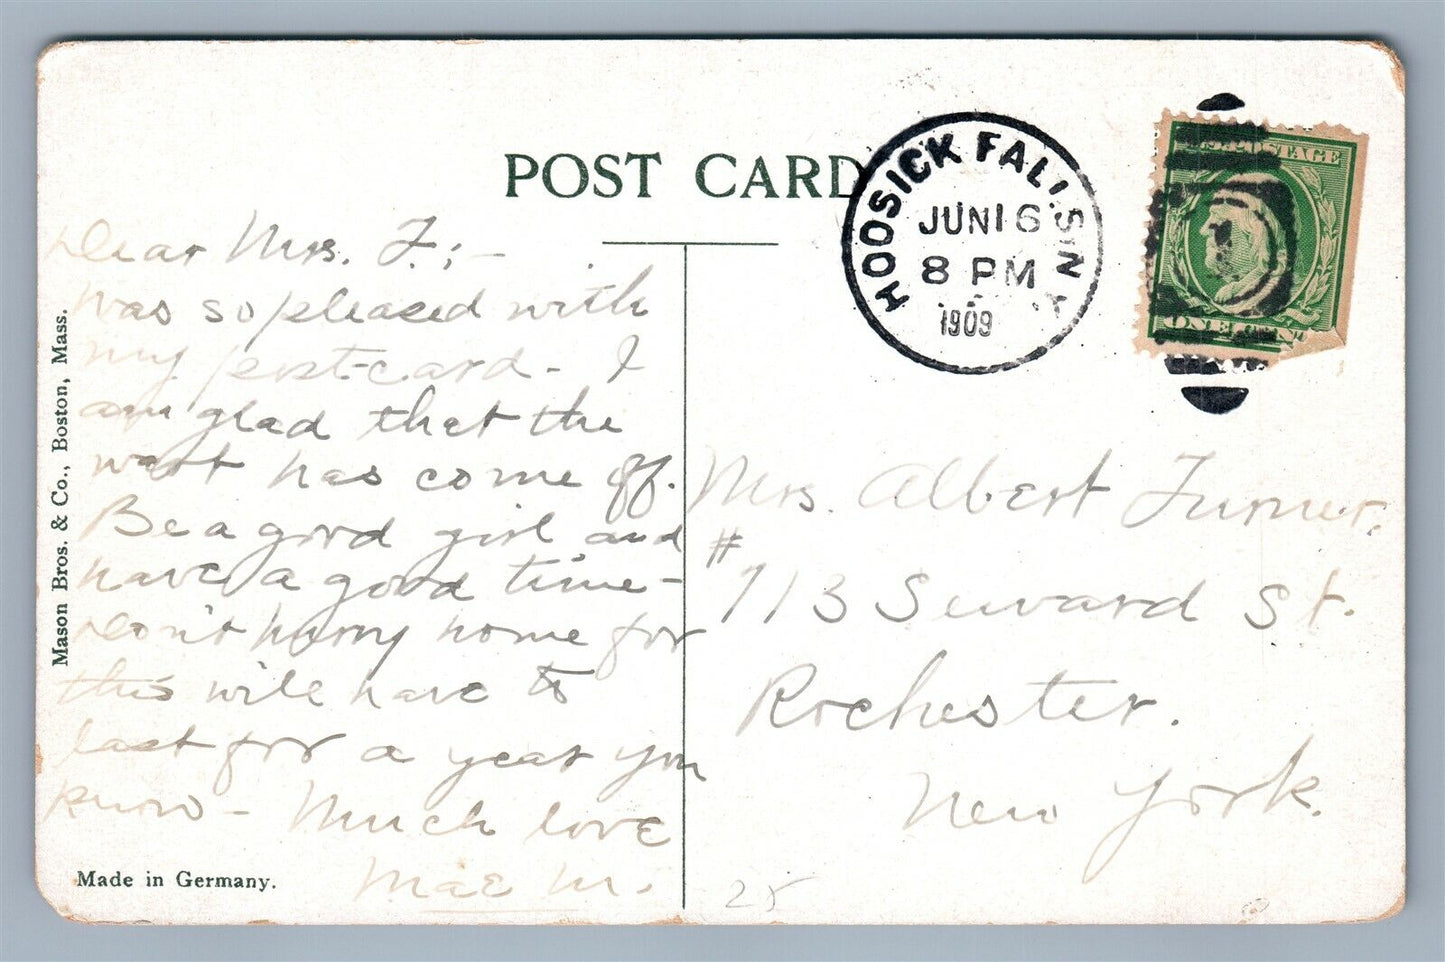 POST CARD
HOOSICK FALLS N.Y.
JUN 16
8 PM
1909
U.S. POSTAGE
ONE CENT
Dear Mrs. F;-
was so pleased with
my post-card - I
am glad that the
wart has come off.
Be a good girl and
have a good time -
Don't hurry home for
this will have to
last for a year you
know - Much love
Mae M.
Mrs. Albert Turner.
# 713 Seward St.
Rochester.
New York.
25
Mason Bros. & Co., Boston, Mass.
Made in Germany.